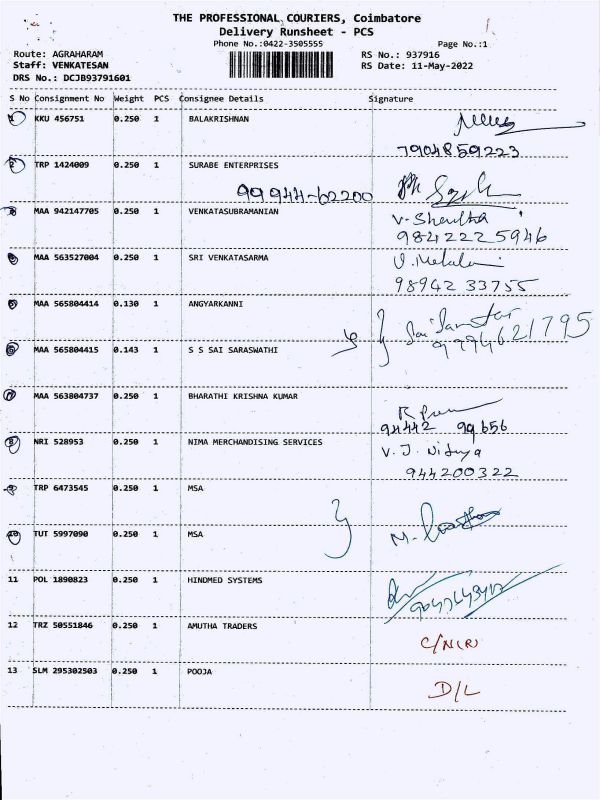 THE PROFESSIONAL COURIERS, Coimbatore
Delivery Runsheet - PCS
Phone No.:0422-3505555
Page No.:1
Route: AGRAHARAM
RS No.: 937916
Staff: VENKATESAN
RS Date: 11-May-2022
DRS No.: DCJB93791601
S No Consignment No Weight PCS Consignee Details Signature
1 KKU 456751 0.250 1 BALAKRISHNAN
7904859223
2 TRP 1424009 0.250 1 SURABE ENTERPRISES
99944-62200
3 MAA 942147705 0.250 1 VENKATASUBRAMANIAN
9842225946
4 MAA 563527004 0.250 1 SRI VENKATASARMA
98942 33755
5 MAA 565804414 0.130 1 ANGYARKANNI
6 MAA 565804415 0.143 1 S S SAI SARASWATHI
7 MAA 563804737 0.250 1 BHARATHI KRISHNA KUMAR
94442 99656
8 NRI 528953 0.250 1 NIMA MERCHANDISING SERVICES
V. J. Nidya
944200322
9 TRP 6473545 0.250 1 MSA
10 TUT 5997090 0.250 1 MSA
11 POL 1890823 0.250 1 HINDMED SYSTEMS
12 TRZ 50551846 0.250 1 AMUTHA TRADERS
13 SLM 295302503 0.250 1 POOJA
D/L